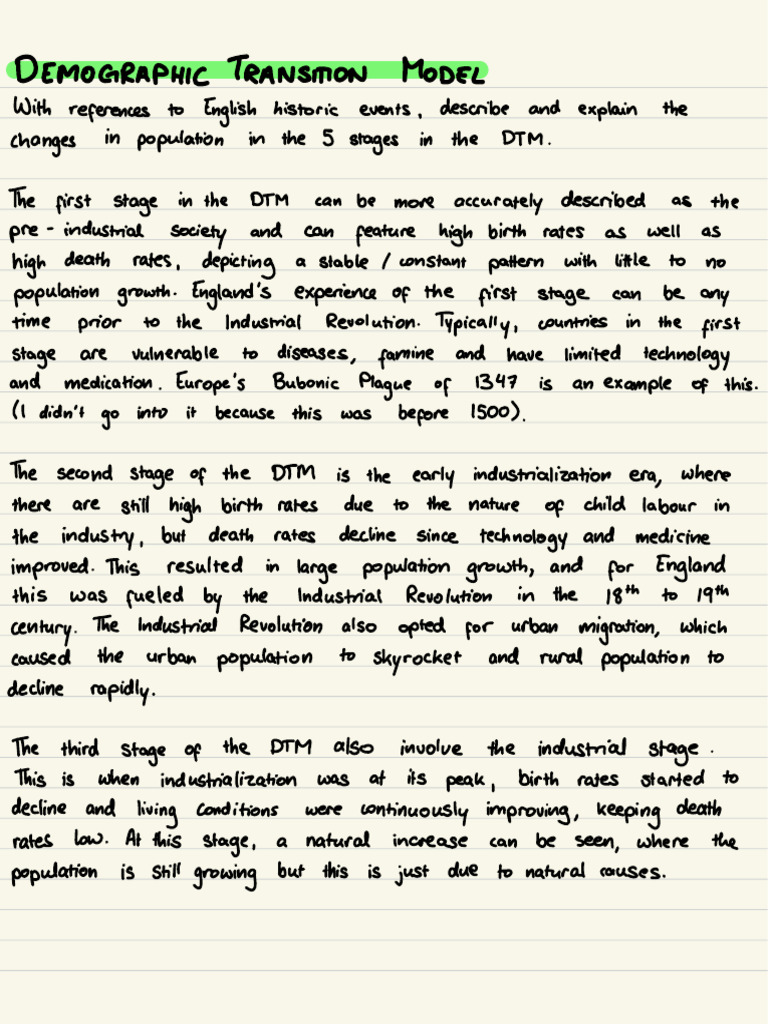 DEMOGRAPHIC TRANSITION MODEL
With references to English historic events, describe and explain the
changes in population in the 5 stages in the DTM.
The first stage in the DTM can be more accurately described as the
pre-industrial society and can feature high birth rates as well as
high death rates, depicting a stable / constant pattern with little to no
population growth. England's experience of the first stage can be any
time prior to the Industrial Revolution. Typically, countries in the first
stage are vulnerable to diseases, famine and have limited technology
and medication. Europe's Bubonic Plague of 1347 is an example of this.
(I didn't go into it because this was before 1500).
The second stage of the DTM is the early industrialization era, where
there are still high birth rates due to the nature of child labour in
the industry, but death rates decline since technology and medicine
improved. This resulted in large population growth, and for England
this was fueled by the Industrial Revolution in the 18th to 19th
century. The Industrial Revolution also opted for urban migration, which
caused the urban population to skyrocket and rural population to
decline rapidly.
The third stage of the DTM also involve the industrial stage.
This is when industrialization was at its peak, birth rates started to
decline and living conditions were continuously improving, keeping death
rates low. At this stage, a natural increase can be seen, where the
population is still growing but this is just due to natural causes.